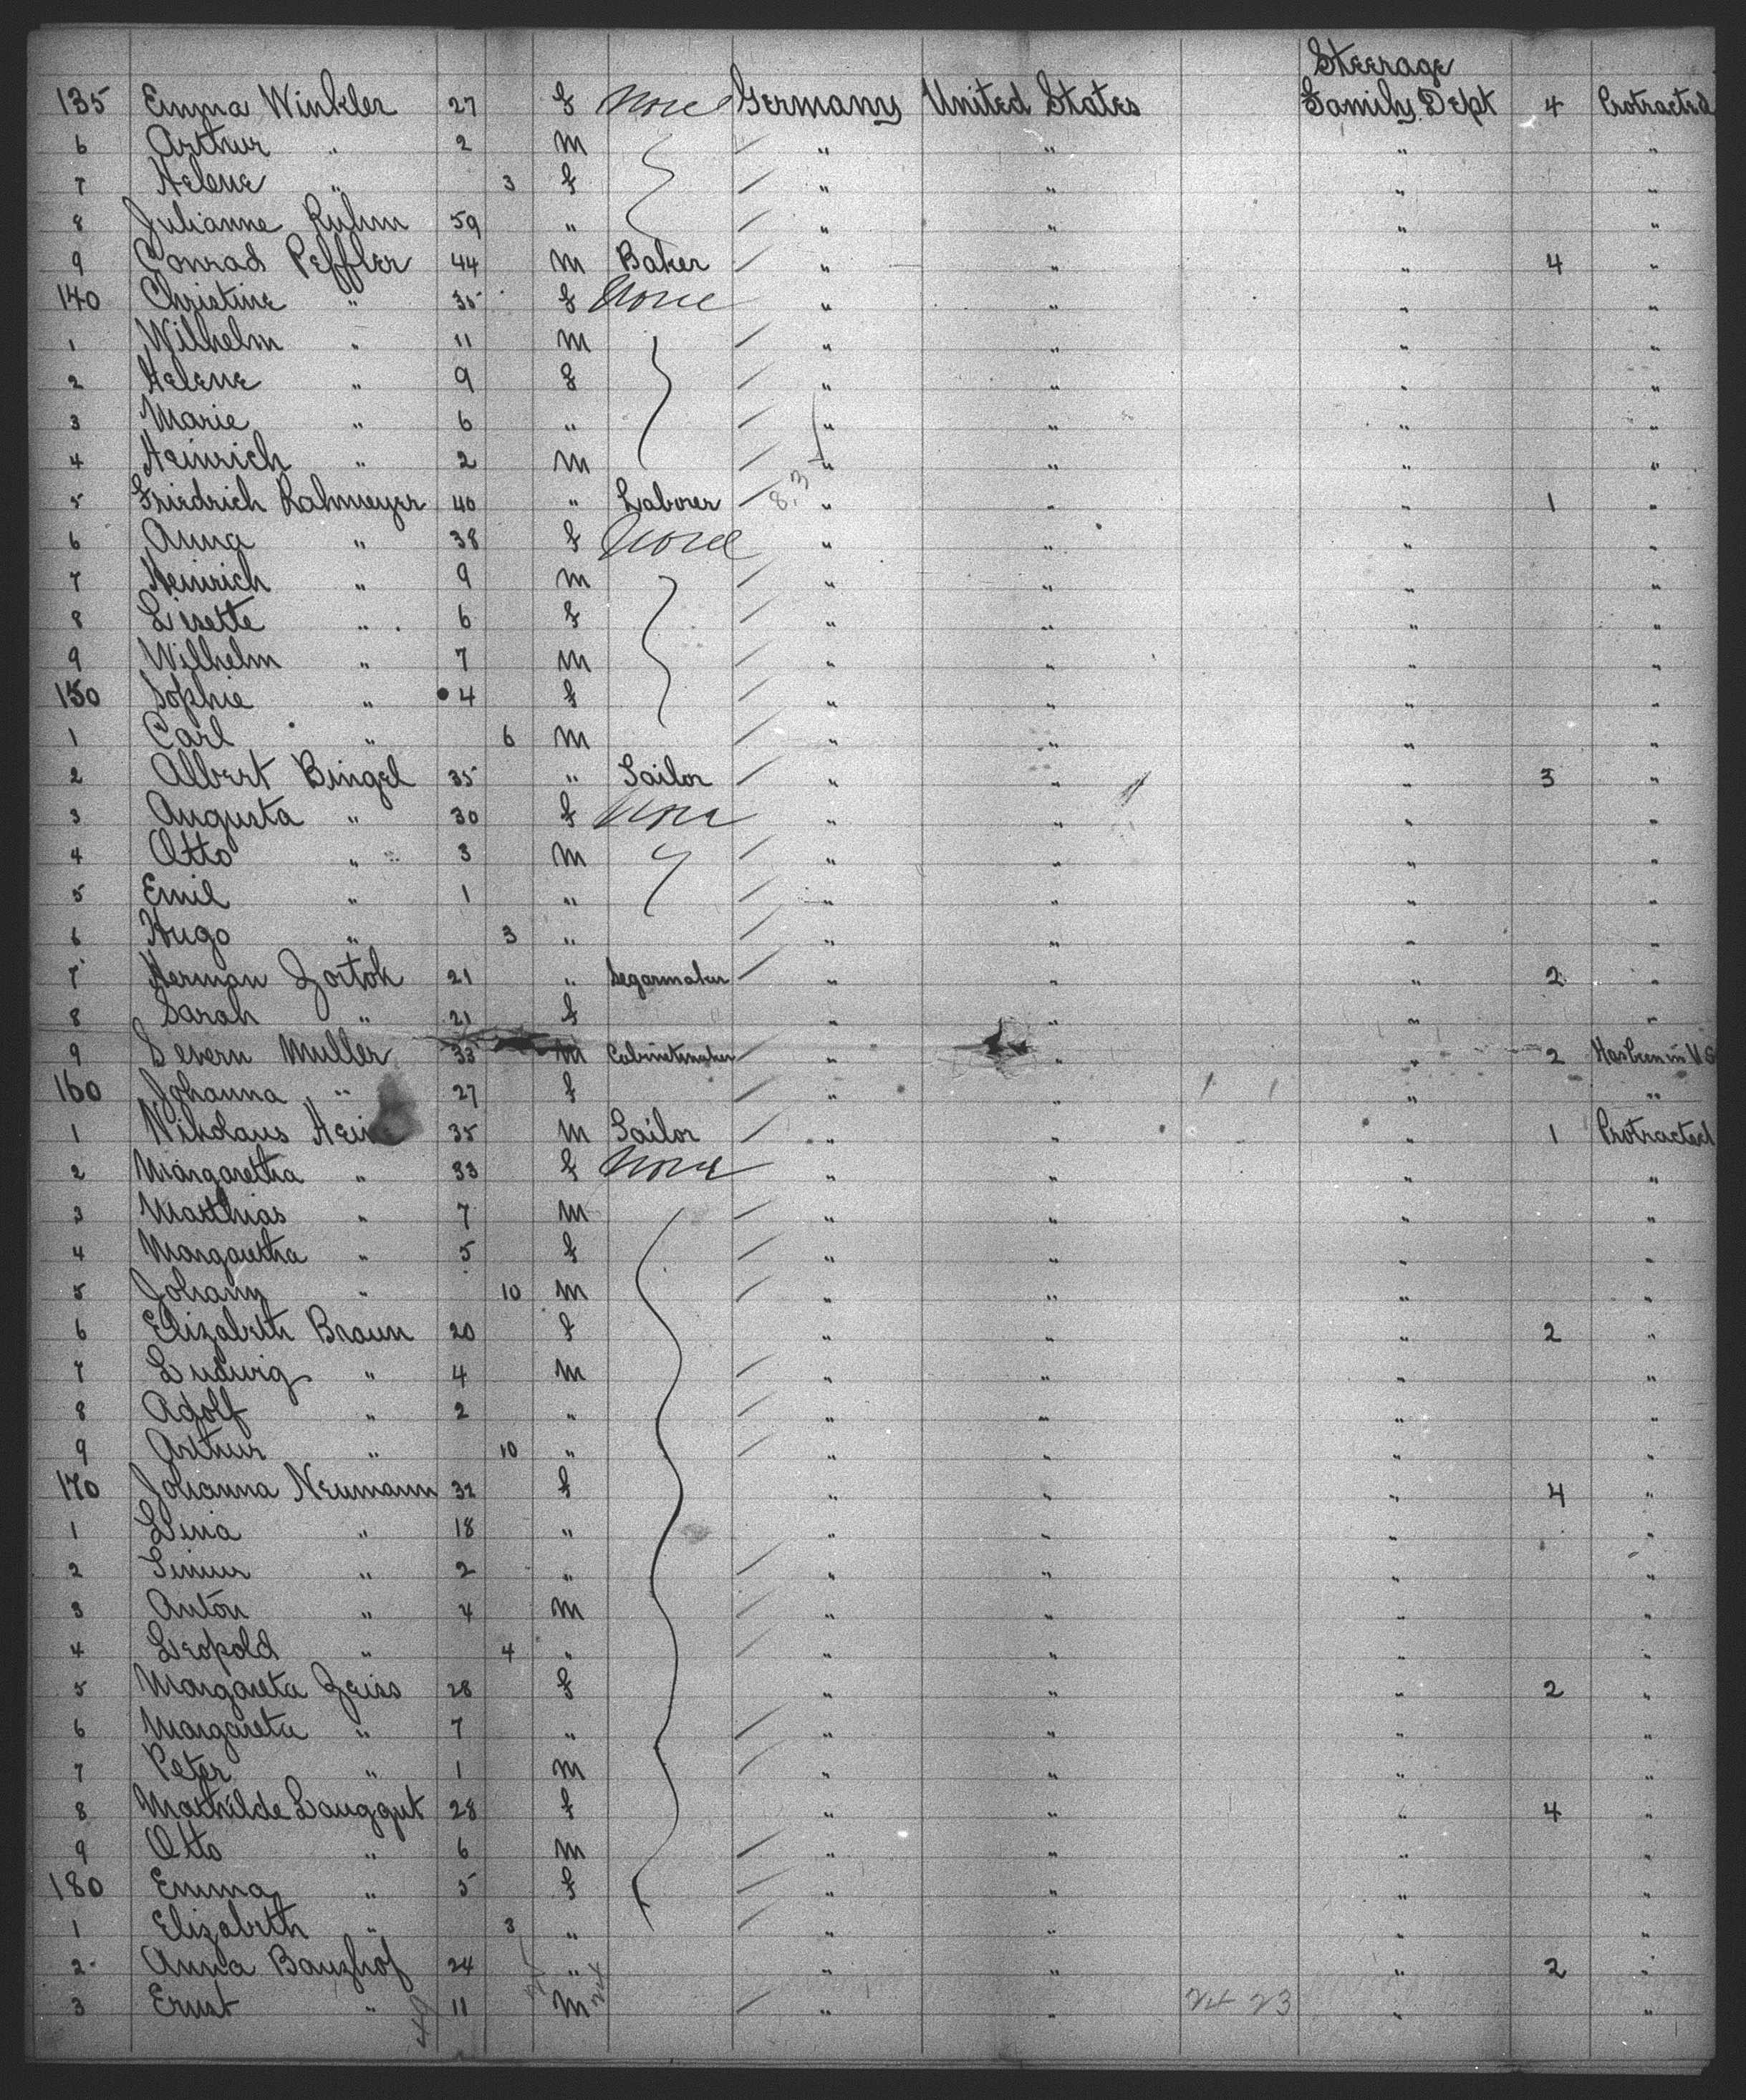 Steerage
135 Emma Winkler 27 f None Germany United States Family Dept 4 Protracted
6 Arthur " 2 m " " " "
7 Helene " 3 f " " " "
8 Julianne Ruhm 59 " " " " "
9 Conrad Peffler 44 m Baker " " " 4 "
140 Christine " 35 f None " " " "
1 Wilhelm " 11 m " " " "
2 Helene " 9 f " " " "
3 Marie " 6 " " " " "
4 Heinrich " 2 m " " " "
5 Friedrich Rahmeyer 40 " Laborer " " " 1 "
6 Anna " 38 f None " " " "
7 Heinrich " 9 m " " " "
8 Lisette " 6 f " " " "
9 Wilhelm " 7 m " " " "
150 Sophie " 4 f " " " "
1 Carl " 6 m " " " "
2 Albert Bingel 35 " Sailor " " " 3 "
3 Augusta " 30 f None " " " "
4 Otto " 3 m " " " "
5 Emil " 1 " " " " "
6 Hugo " 3 " " " " "
7 Herman Zortok 21 " Segarmaker " " " 2 "
8 Sarah " 21 f " " " "
9 Severn Muller 33 m Cabinetmaker " " " 2 Has been in U.S
160 Johanna " 27 f " " " "
1 Nikolaus Hein 35 m Sailor " " " 1 Protracted
2 Margaretha " 33 f None " " " "
3 Matthias " 7 m " " " "
4 Margaretha " 5 f " " " "
5 Johann " 10 m " " " "
6 Elizabeth Braun 20 f " " " 2 "
7 Ludwig " 4 m " " " "
8 Adolf " 2 " " " " "
9 Arthur " 10 " " " " "
170 Johanna Neumann 32 f " " " 4 "
1 Lina " 18 " " " " "
2 " 2 " " " " "
3 Anton " 4 m " " " "
4 Leopold " 4 " " " " "
5 Margareta Zeiss 28 f " " " 2 "
6 Margareta " 7 " " " " "
7 Peter " 1 m " " " "
8 Mathilde Lauggut 28 f " " " 4 "
9 Otto " 6 m " " " "
180 Emma " 5 f " " " "
1 Elizabeth " 3 " " " " "
2 Anna Banzhof 24 " " " " 2 "
3 Ernst " 11 m " " 24 23 " "